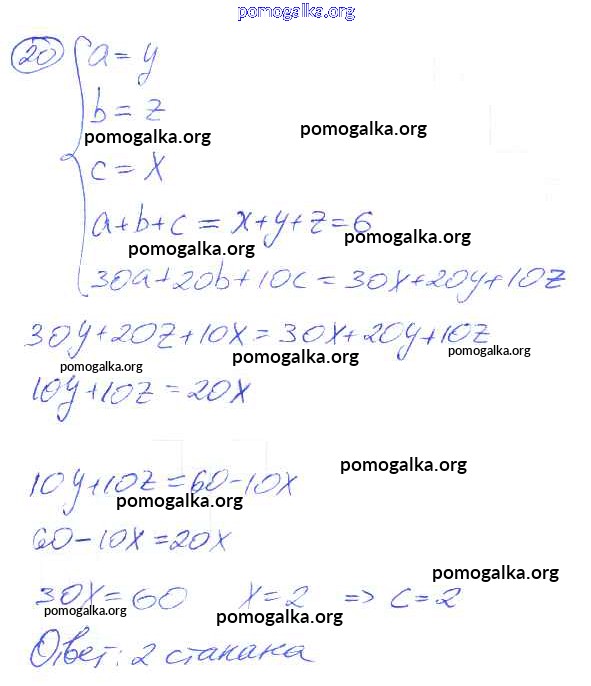 pomogalka.org
20 a = y
b = z
pomogalka.org pomogalka.org
c = x
a+b+c = x+y+z=6
pomogalka.org pomogalka.org
30a+20b+10c = 30x+20y+10z
30y+20z+10x = 30x+20y+10z
pomogalka.org pomogalka.org pomogalka.org
10y+10z = 20x
pomogalka.org
10y+10z = 60-10x
pomogalka.org
60-10x = 20x
pomogalka.org
30x = 60 x = 2 => c = 2
pomogalka.org pomogalka.org
Ответ: 2 стакана